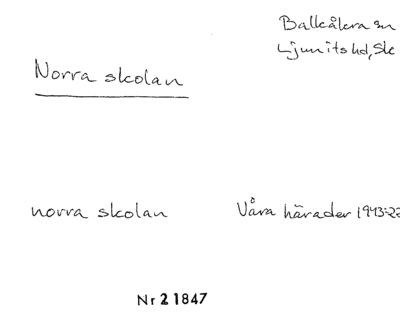 Balkåkra sn
Ljunits hd, Sk
Norra skolan
norra skolan
Våra härader 1943:22
Nr 21847